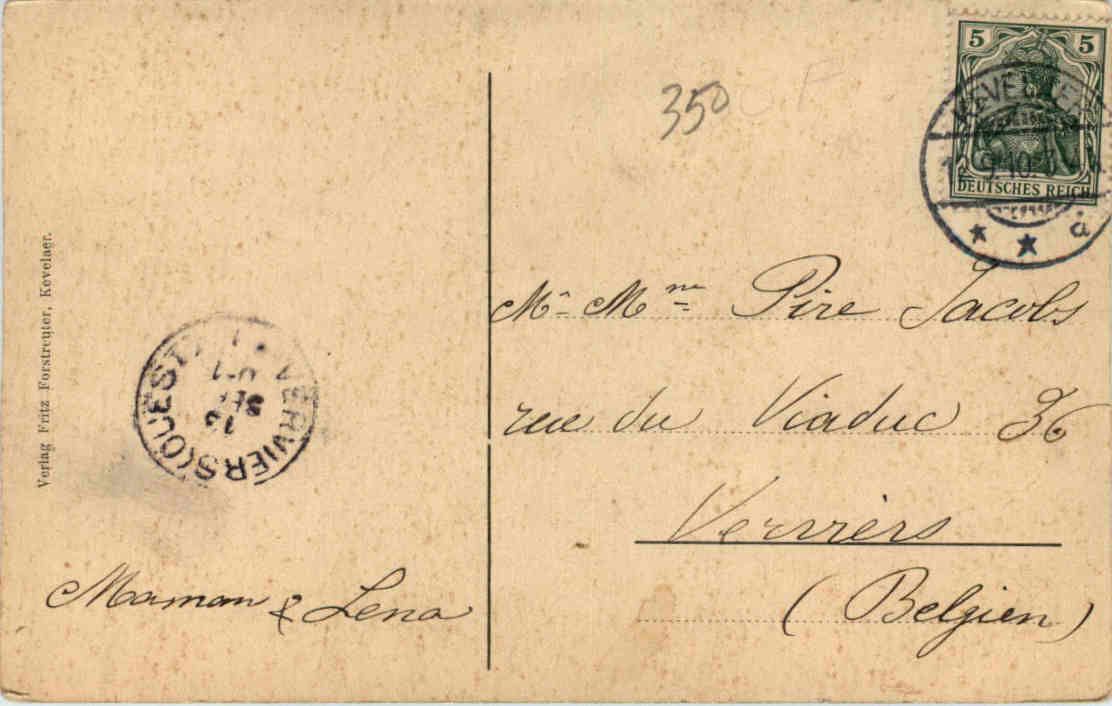 5 5
DEUTSCHES REICH
KEVELAER
12.9.10.
* * a
350
Verlag Fritz Forstreuter, Kevelaer.
VERVIERS (OUEST)
SEPT
Mr Mme Pire Jacobs
rue du Viaduc 36
Verviers
(Belgien)
Maman & Lena